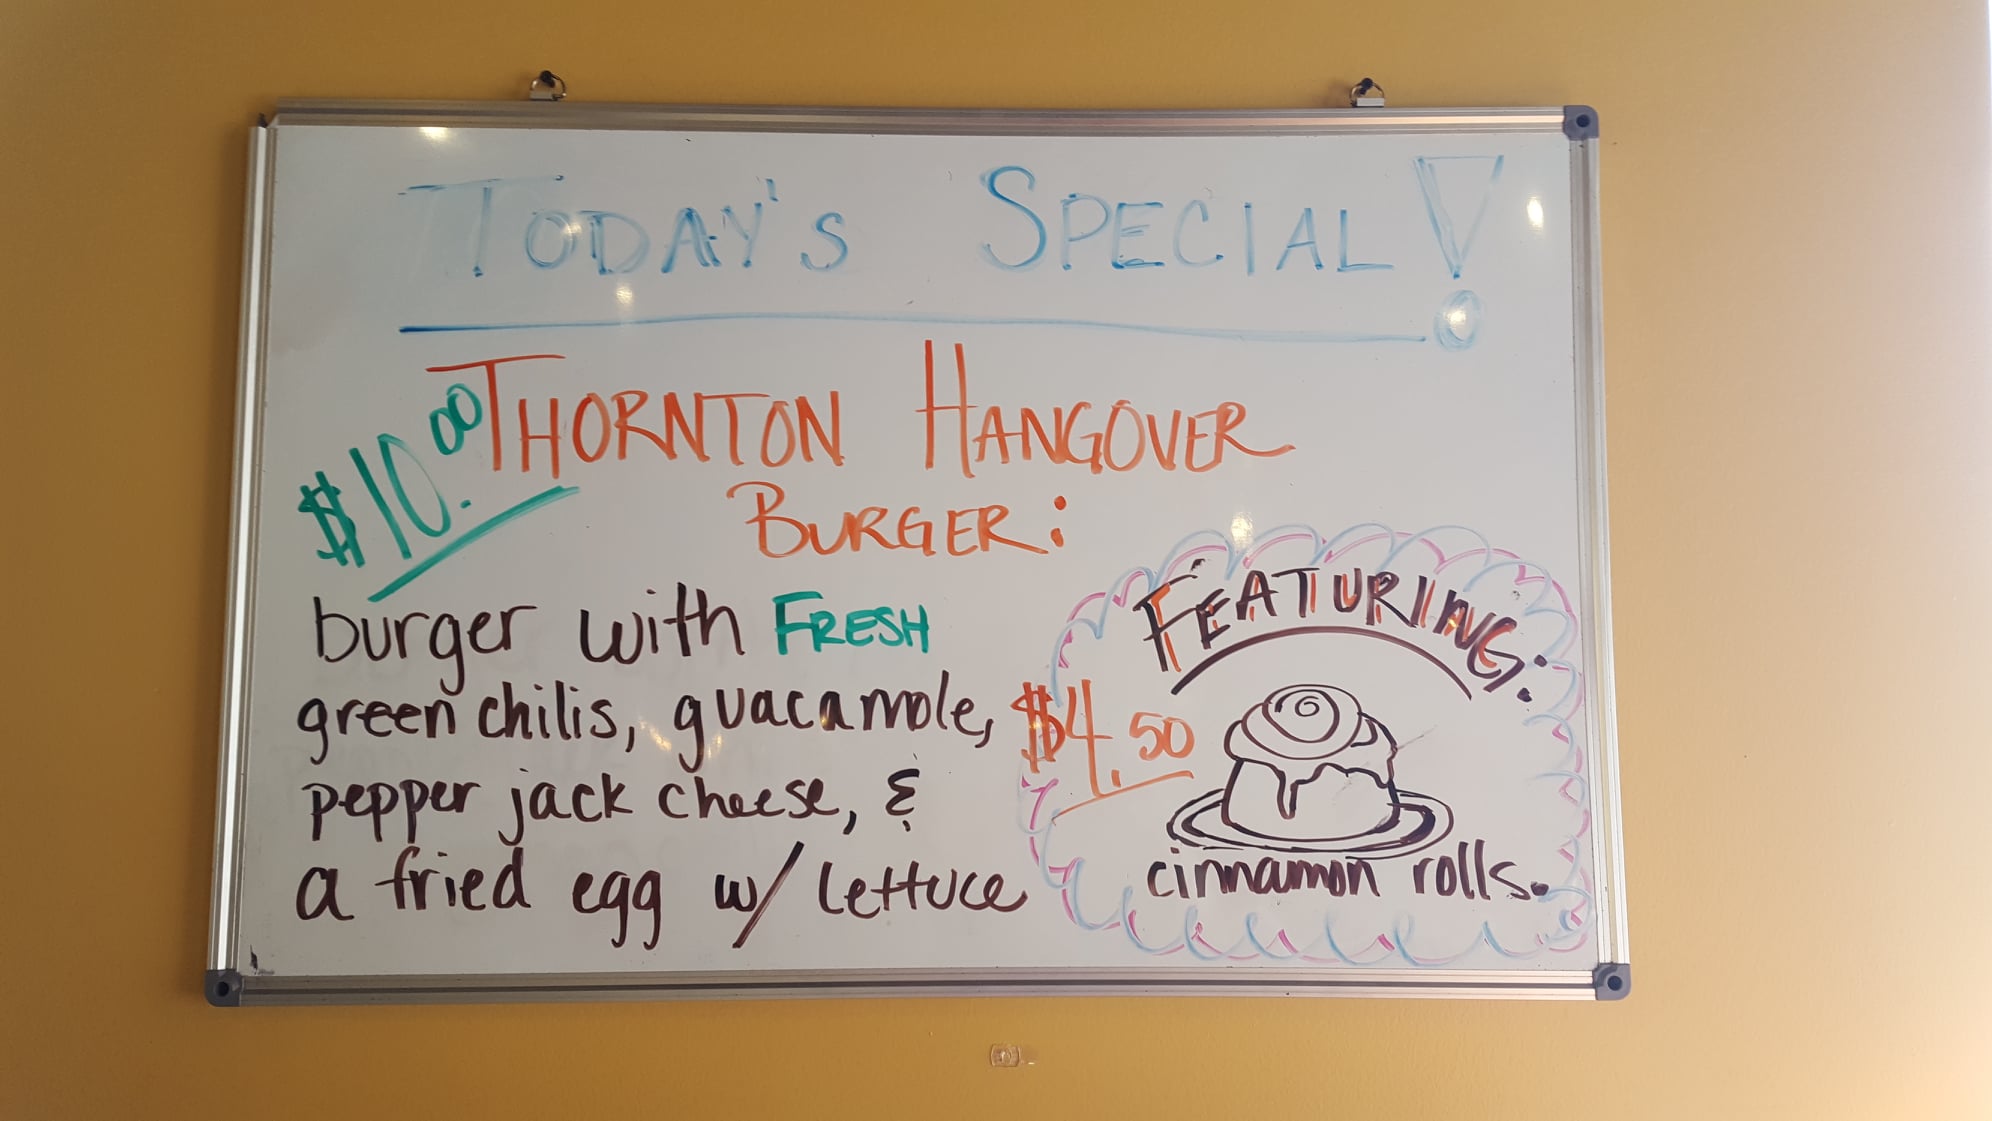 TODAY'S SPECIAL!
$10.00
THORNTON HANGOVER
BURGER:
burger with FRESH
green chilis, guacamole,
pepper jack cheese, &
a fried egg w/ lettuce
FEATURING:
$4.50
cinnamon rolls.